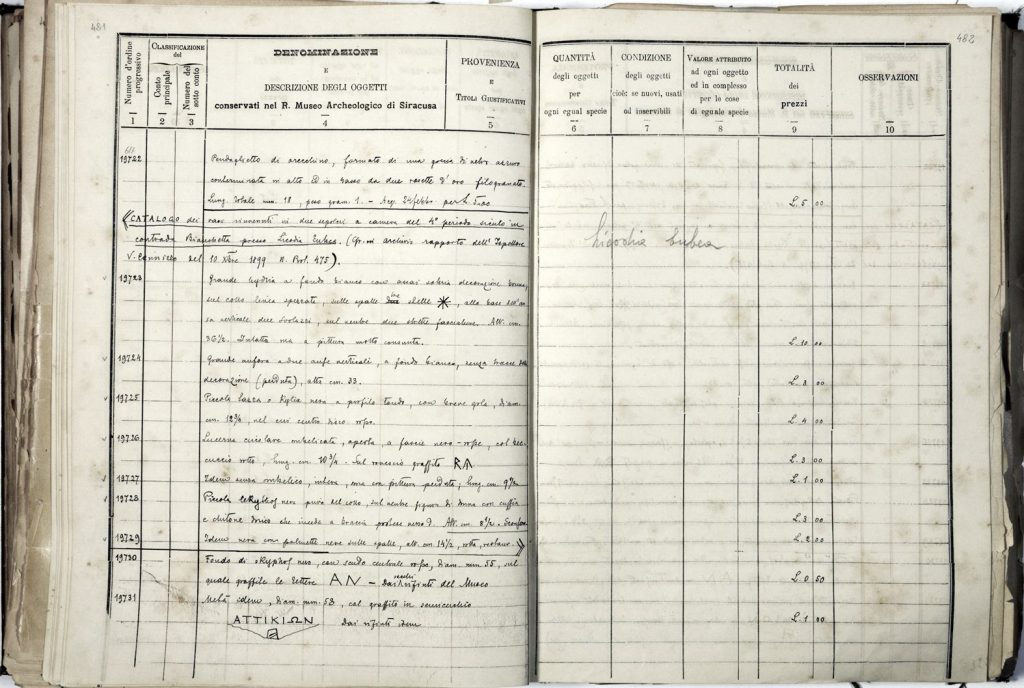 481
Numero d'ordine progressivo
CLASSIFICAZIONE del
Conto principale
Numero del sotto conto
DENOMINAZIONE
E
DESCRIZIONE DEGLI OGGETTI
conservati nel R. Museo Archeologico di Siracusa
PROVENIENZA
E
TITOLI GIUSTIFICATIVI
1 2 3 4 5
19722 Pendaglietto di orecchino, formato di una goccia di vetro azzurro
conterminata in alto ed in basso da due rosette d'oro filogranato.
Lung. totale mm. 18, peso gram. 1. - Acq. per L.
(CATALOGO dei vasi rinvenuti in due sepolcri a camera del 4° periodo siculo in
contrada Bianchetta presso Licodia Eubea. (Cfr. archivio rapporto dell'Ispettore
V. Cannizzo del 10 Xbre 1899 N. Prot. 475).
19723 Grande hydria a fondo bianco con assai sobria decorazione bruna,
sul collo linea spezzata, sulle spalle due stelle, alla base dell'
sa verticale due svolazzi, sul ventre due strette fasciature. Alt. cm.
36 1/2. Intatta ma a pittura molto consunta.
19724 Grande anfora a due anse verticali, a fondo bianco, senza tracce della
decorazione (perduta), alta cm. 33.
19725 Piccola tazza o Kylix nera a profilo tondo, con breve gola, diam.
cm. 12 3/4, nel cui centro disco rosso.
19726 Lucerna circolare ombelicata, aperta, a fascie nero-rosse, col bec-
cuccio rotto, lung. cm. 10 3/4. Sul rovescio graffito
19727 Idem senza ombelico, intera, ma con pittura perduta, lung. cm. 9
19728 Piccola lekythos nera priva del collo, sul ventre figura di donna con cuffia
e chitone dorico che incede a braccia protese verso d. Alt. cm. 8 1/2.
19729 Idem nera con palmette nere sulle spalle, alt. cm. 14 1/2, rotta, restaur.)
19730 Fondo di skyphos nero, con scudo centrale rosso, diam. mm. 55, sul
quale graffite le lettere AN – Dai vecchi rifiuti del Museo
19731 Metà idem, diam. mm. 53, col graffito in semicerchio
ΑΤΤΙΚΙΩΝ Dai rifiuti idem
482
QUANTITÀ
degli oggetti
per
ogni egual specie
CONDIZIONE
degli oggetti
cioè: se nuovi, usati
od inservibili
VALORE ATTRIBUITO
ad ogni oggetto
ed in complesso
per le cose
di eguale specie
TOTALITÀ
dei
prezzi
OSSERVAZIONI
6 7 8 9 10
L. 5 00
Licodia Eubea
L. 10 00
L. 3 00
L. 4 00
L. 3 00
L. 1 00
L. 3 00
L. 2 00
L. 0 50
L. 1 00